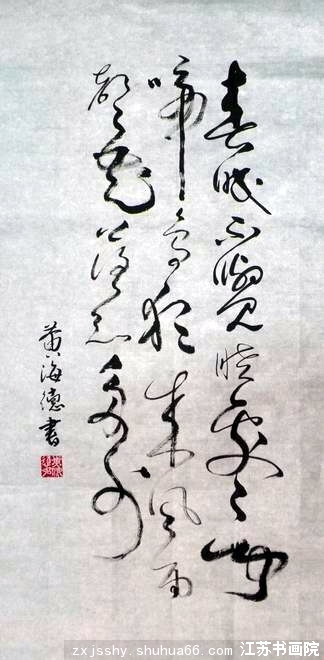 春眠不覺曉處々聞
啼鳥夜来風雨
聲花落知多少
黄海德書
zxjsshy.shuhua66.com 江苏书画院